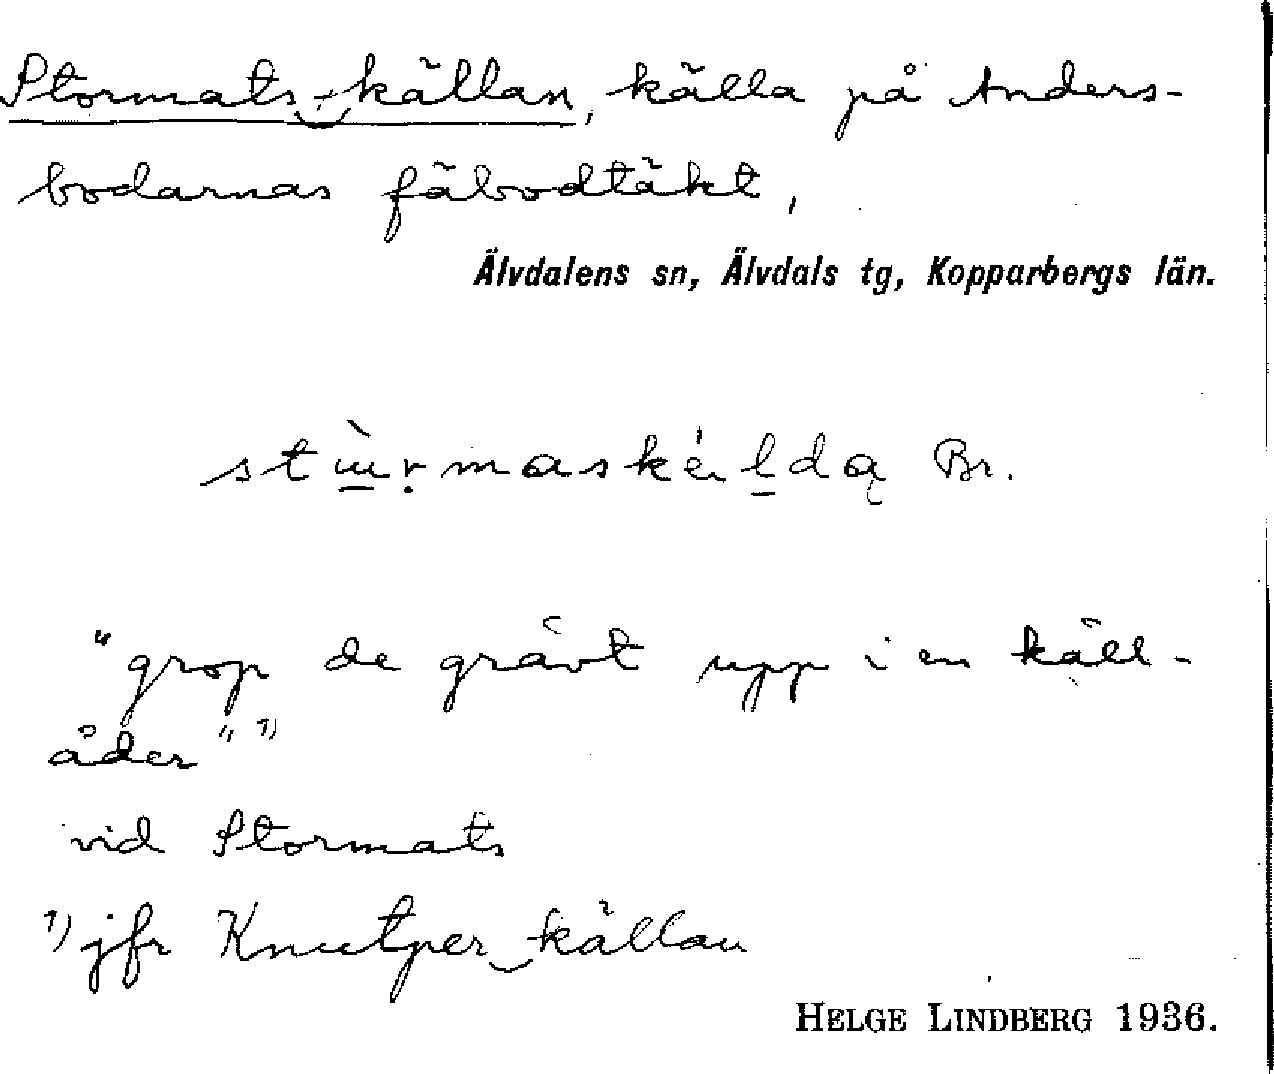 Stormats-källan, källa på Anders-
bodarnas fäbodtäkt,
Älvdalens sn, Älvdals tg, Kopparbergs län.
Br.
"grop de grävt upp i en käll-
åder" 1)
vid Stormats
1) jfr Knutper källan
HELGE LINDBERG 1936.